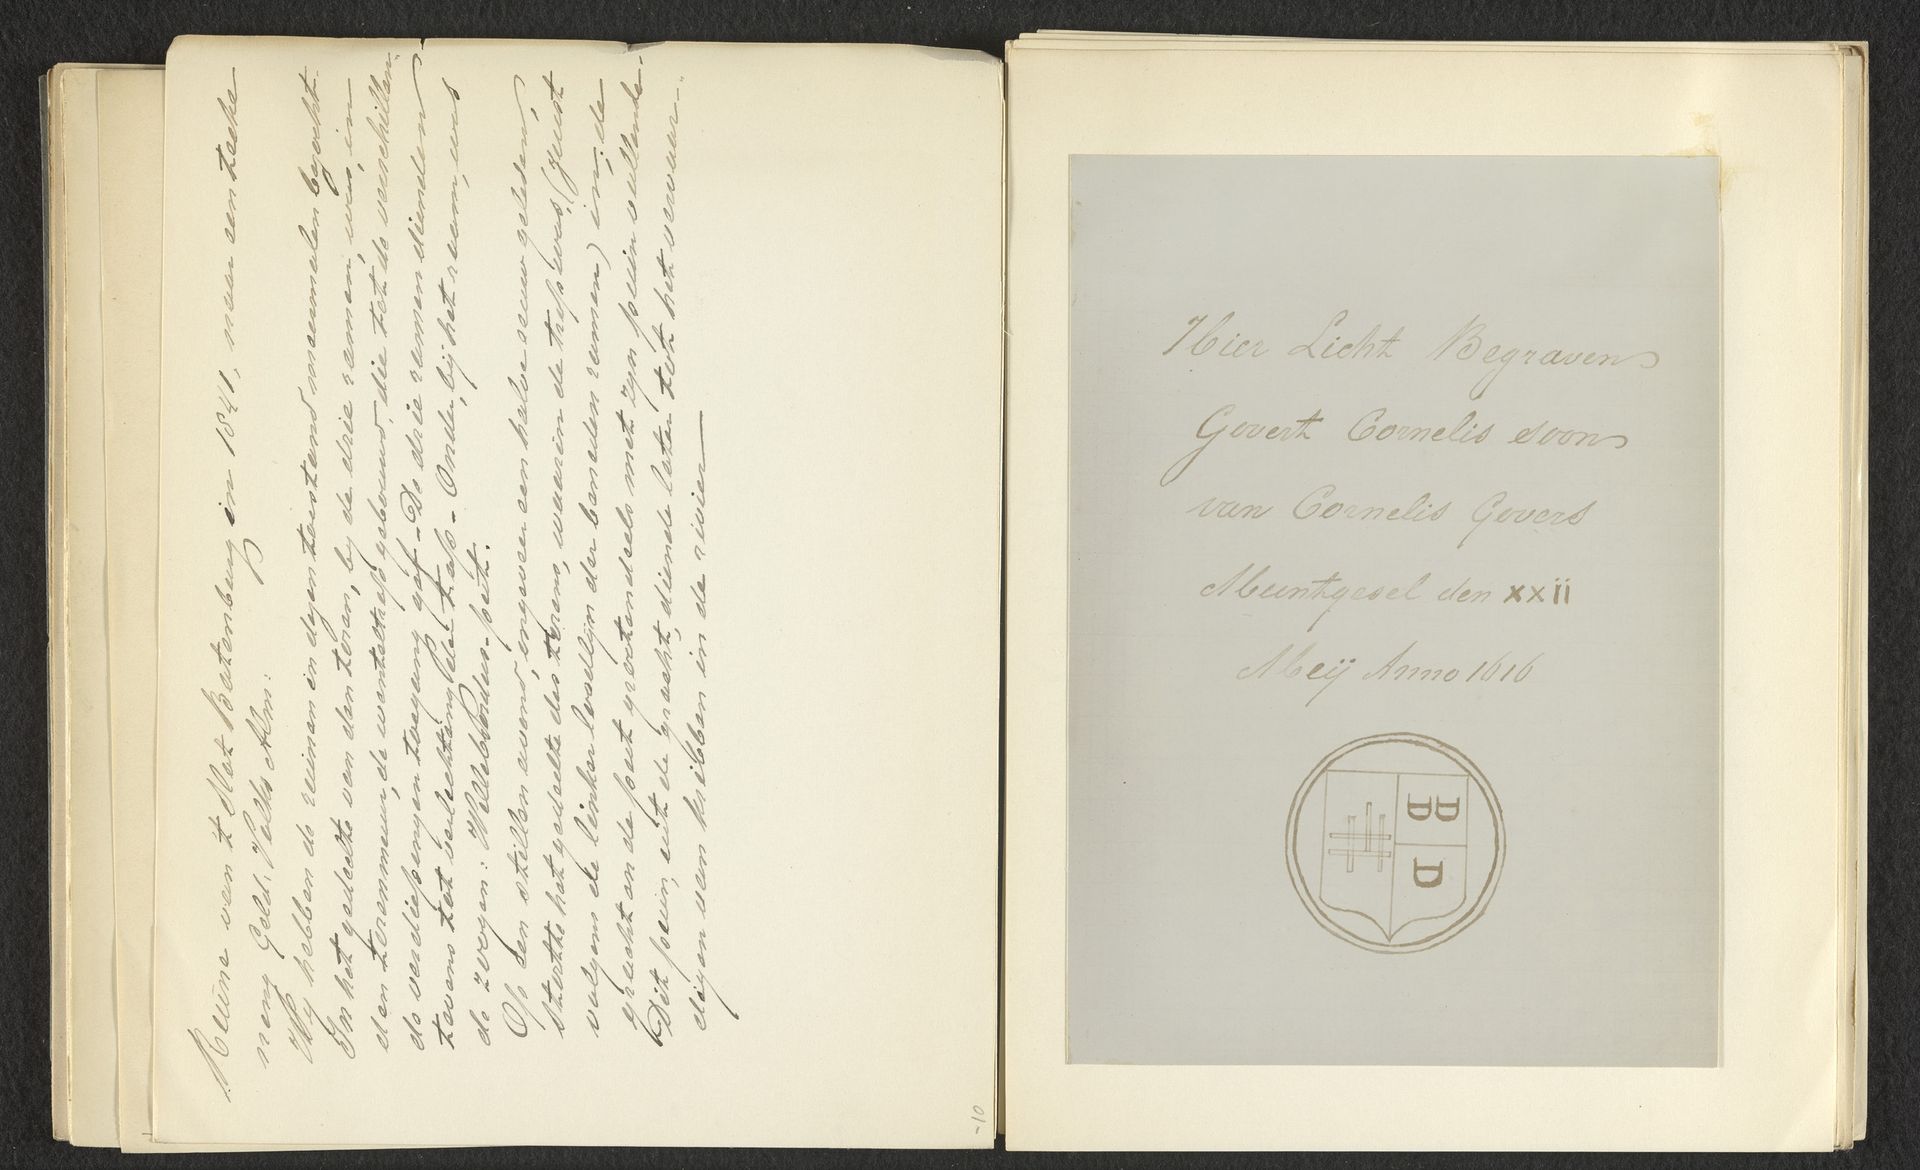 Ruine van 't Slot Batenburg in 1841, naar een teeke
ning Geld. Volks Alm:
Wy hebben de ruinen in dezen toestand meermalen bezocht.
In het gedeelte van den toren, by de drie ramen, was, in
den torenmuur, de wenteltrap gebouwd, die tot de verschillen-
de verdiepingen toegang gaf. De drie ramen dienden
tevens tot verlichting der trap. Onder, bij het raam, was
de zoogen: Willebordus-put.
Op een stillen avond, ongeveer een halve eeuw geleden,
stortte het gedeelte des torens, waarin de trap was, (juist
volgens de linker loodlijn der beneden ramen) in; de
gracht en de put grootendeels met zyn puin vullende.
Dit puin, uit de gracht, diende later tot het vervaar-
digen van kribben in de rivier
-10
Hier Licht Begraven
Govert Cornelis soon
van Cornelis Govers
Muntgesel den xxii
Meÿ Anno 1616
B D
D